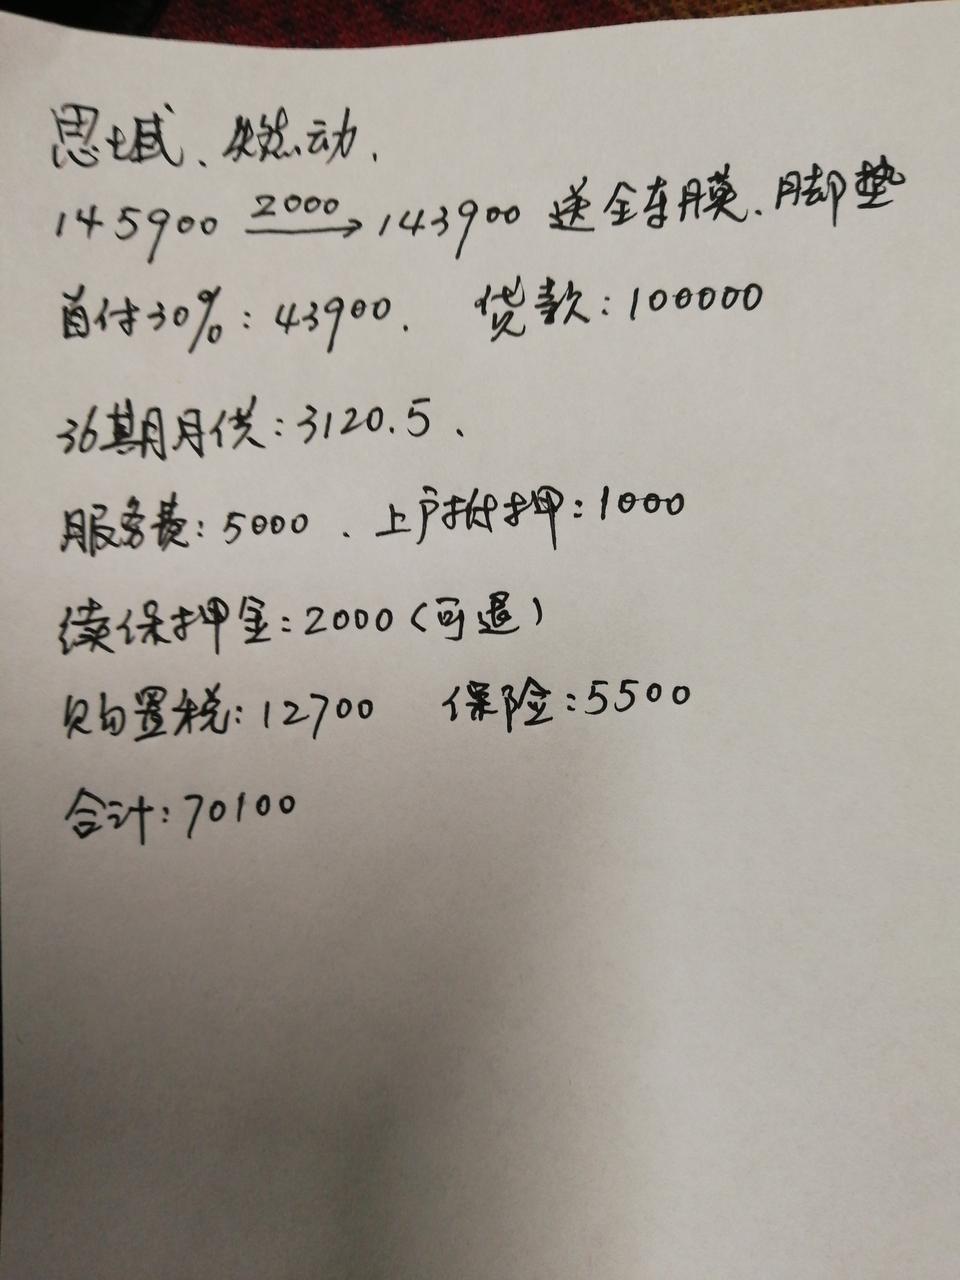 思域、燃动,
145900 2000→ 143900 送全车膜、脚垫
首付30%:43900. 贷款:100000
36期月供:3120.5、
服务费:5000、上户抵押:1000
续保押金:2000(可退)
购置税:12700 保险:5500
合计:70100